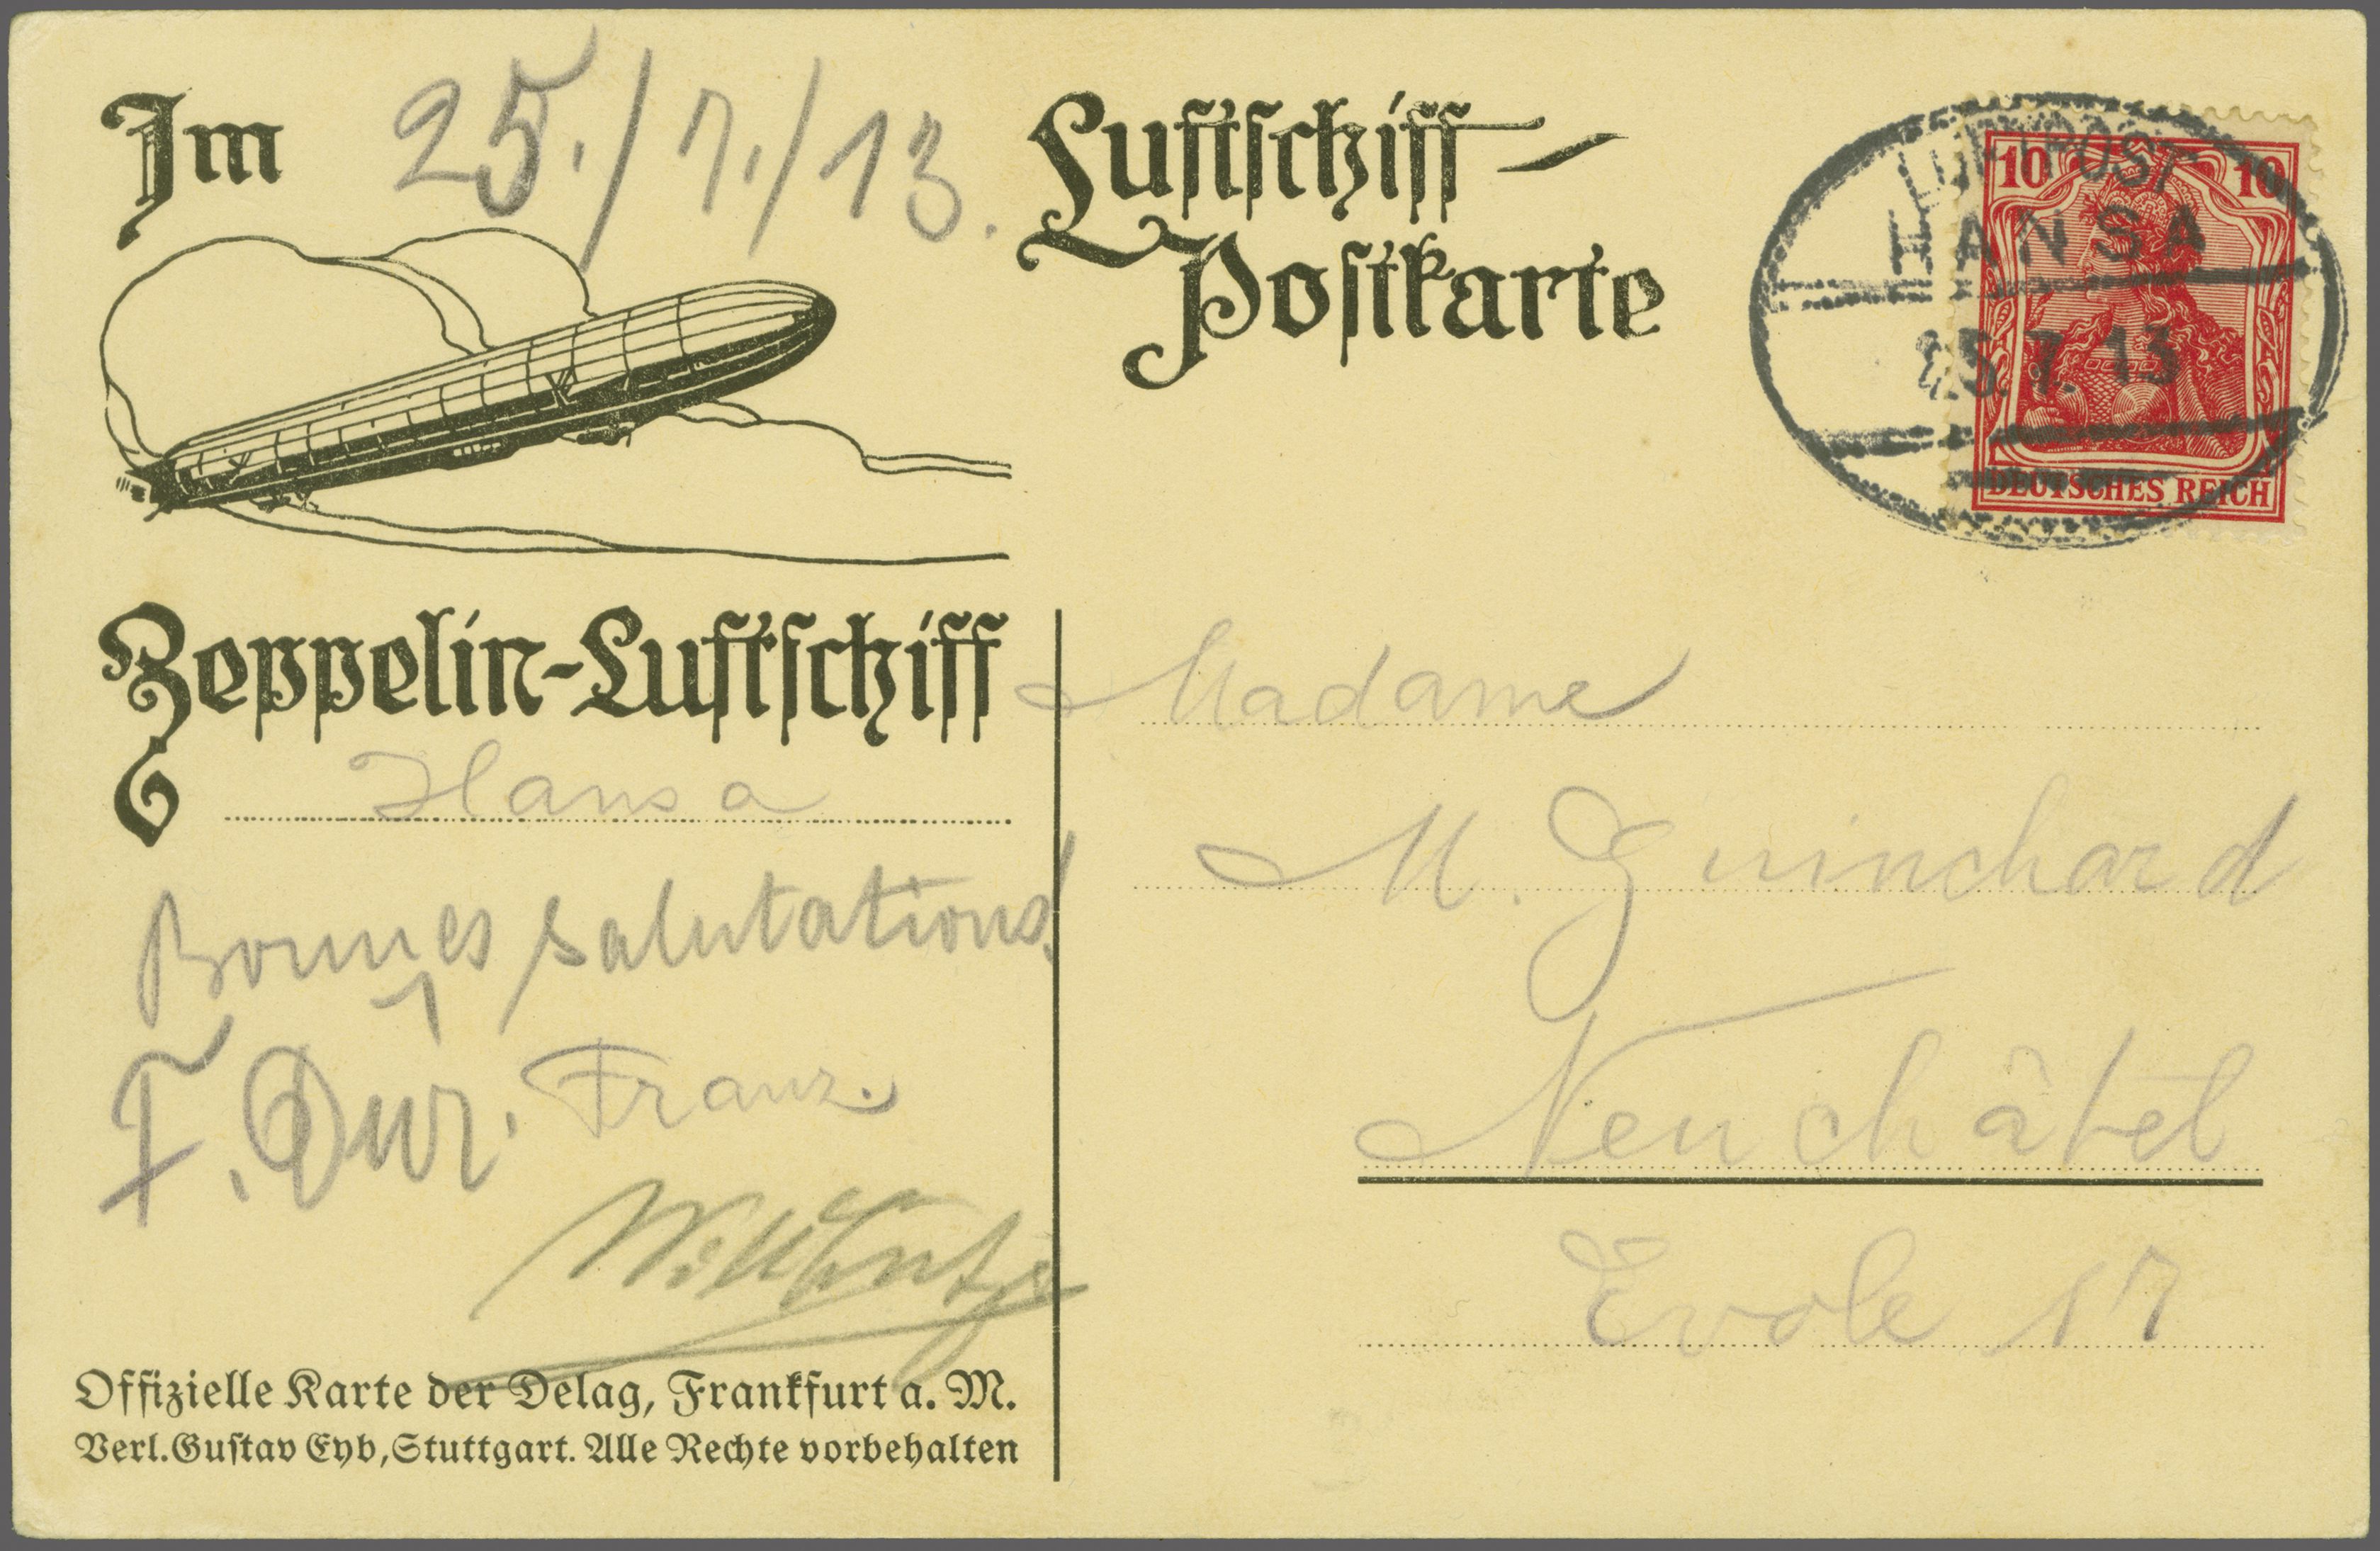 Im
25./7./13.
Luftschiff-
Postkarte
LUFTPOST
HANSA
25.7.13
10 10
DEUTSCHES REICH
Zeppelin-Luftschiff
Hansa
Bonnes salutations!
F. Dür. Franz.
Offizielle Karte der Delag, Frankfurt a. M.
Verl. Gustav Eyb, Stuttgart. Alle Rechte vorbehalten
Madame
M. Guinchard
Neuchâtel
Evole 17